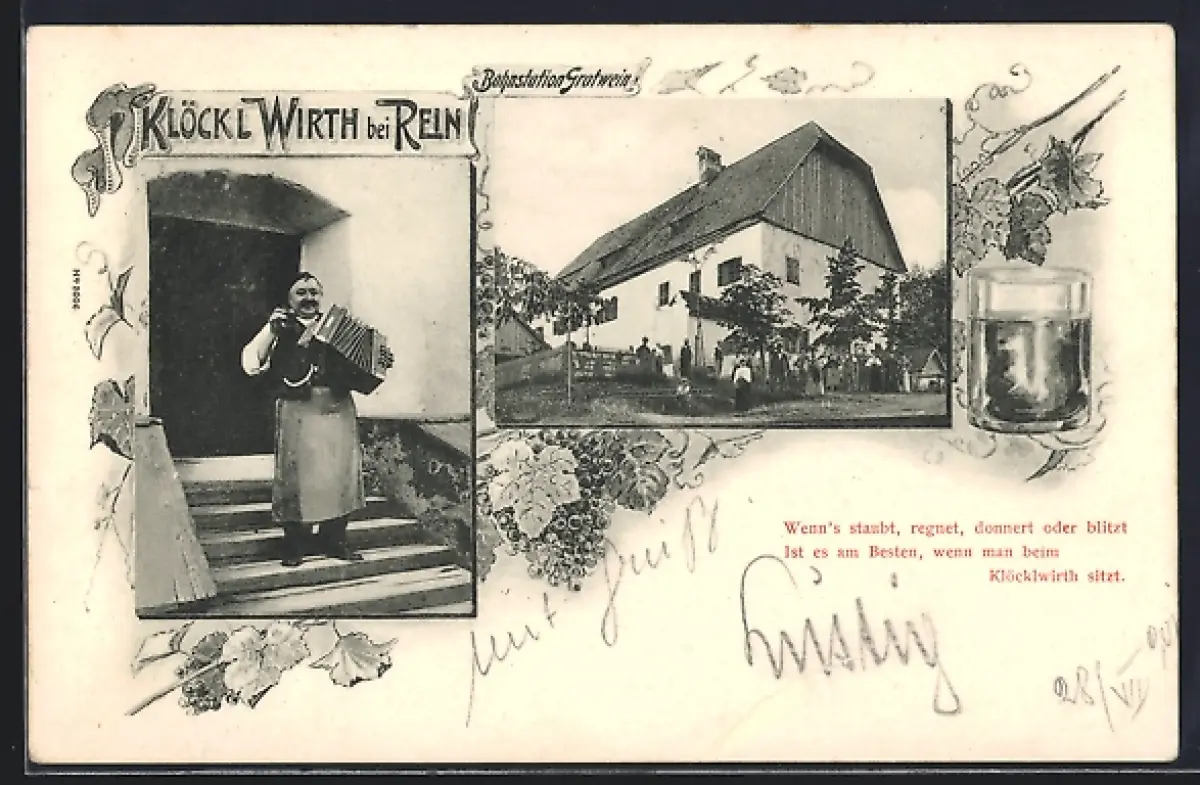 Bahnstation Gratwein.
KLÖCKL WIRTH bei REIN
Wenn's staubt, regnet, donnert oder blitzt
Ist es am Besten, wenn man beim
Klöcklwirth sitzt.
mit Gruß
28/VII